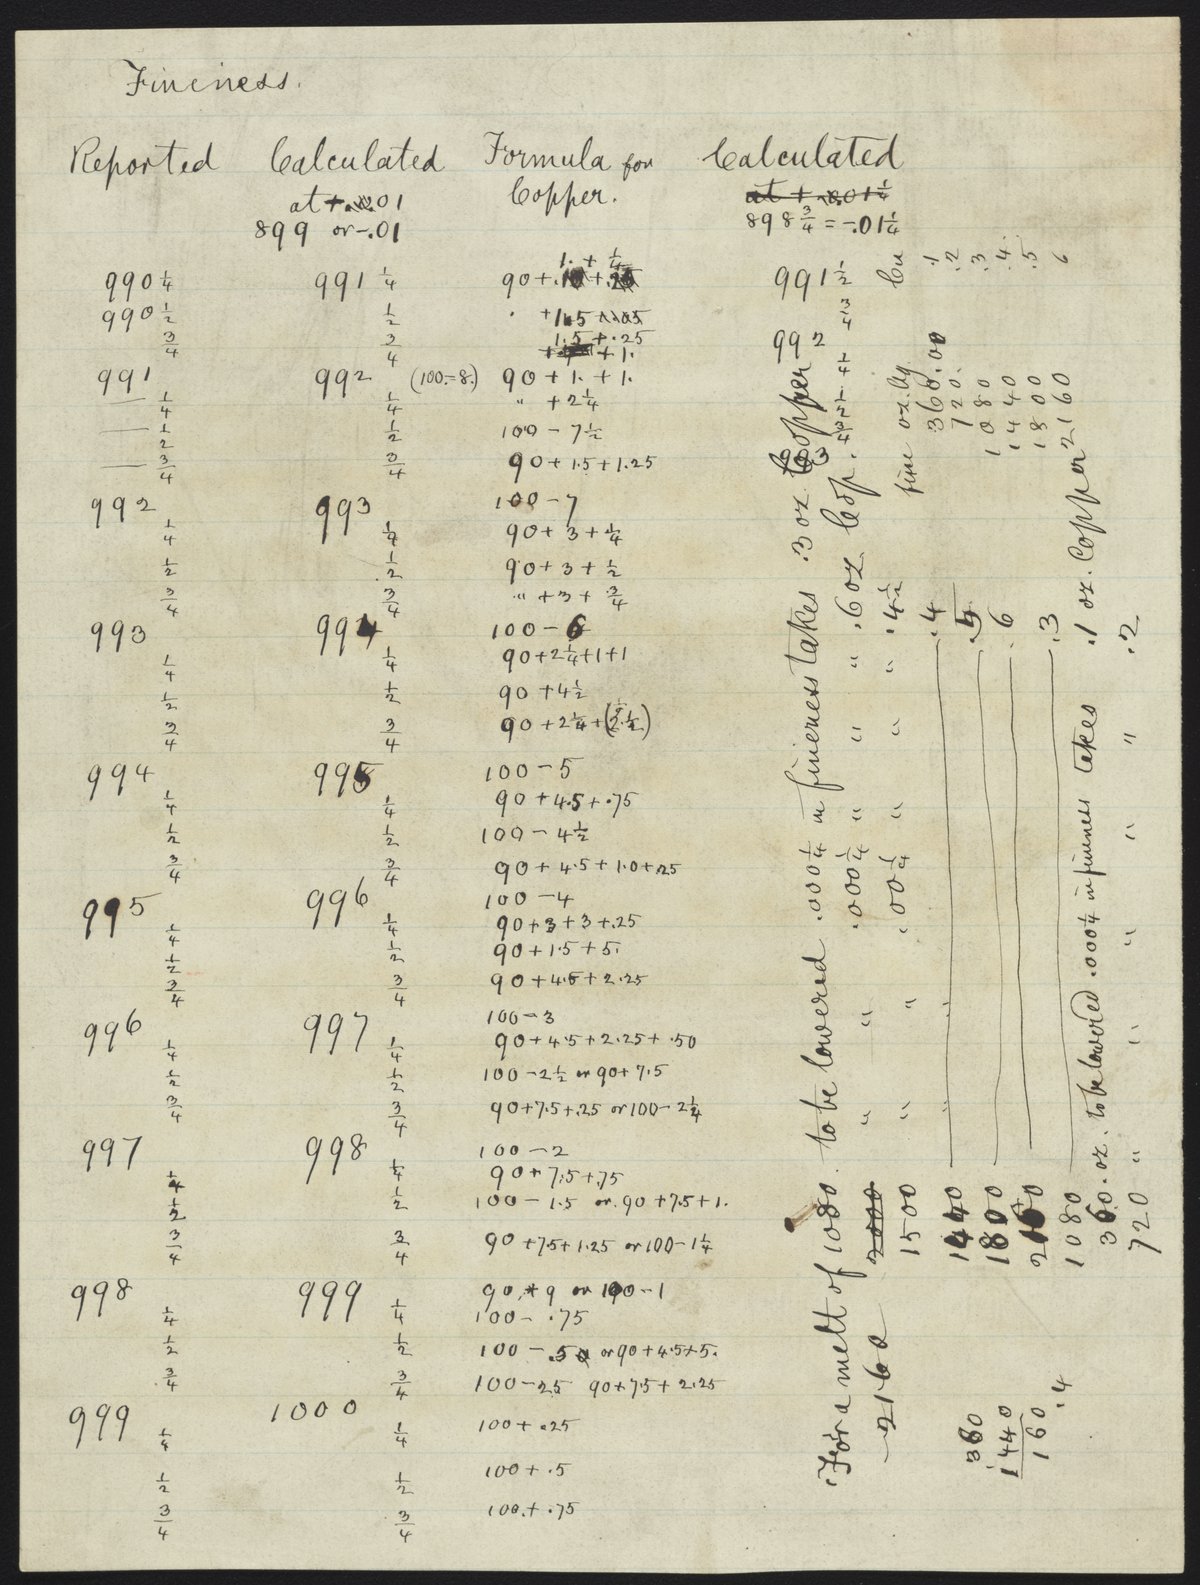 Fineness.
Reported Calculated Formula for Calculated
at +.01 Copper. at +.01 1/4
899 or -.01 898 3/4 = -.01 1/4
1. + 1/4
990 1/4 991 1/4 90 + 991 1/2
990 1/2 1/2 + 1.5 3/4
3/4 3/4 1.5 + .25 992
+ 1.
991 992 (100.-8.) 90 + 1. + 1. 1/4
— 1/4 1/4 " + 2 1/4 1/2
— 1/2 1/2 100 - 7 1/2 3/4
— 3/4 3/4 90 + 1.5 + 1.25
992 993 100 - 7
1/4 1/4 90 + 3 + 1/4
1/2 1/2 90 + 3 + 1/2
3/4 3/4 " + 3 + 3/4
993 994 100 - 6
1/4 1/4 90 + 2 1/4 + 1 + 1
1/2 1/2 90 + 4 1/2
3/4 3/4 90 + 2 1/4 +
994 995 100 - 5
1/4 1/4 90 + 4.5 + .75
1/2 1/2 100 - 4 1/2
3/4 3/4 90 + 4.5 + 1.0 + .25
995 996 100 - 4
1/4 1/4 90 + 3 + 3 + .25
1/2 1/2 90 + 1.5 + 5.
3/4 3/4 90 + 4.5 + 2.25
996 997 100 - 3
1/4 1/4 90 + 4.5 + 2.25 + .50
1/2 1/2 100 - 2 1/2 or 90 + 7.5
3/4 3/4 90 + 7.5 + .25 or 100 - 2 1/4
997 998 100 - 2
1/4 1/4 90 + 7.5 + .75
1/2 1/2 100 - 1.5 or 90 + 7.5 + 1.
3/4 3/4 90 + 7.5 + 1.25 or 100 - 1 1/4
998 999 90 + 9 or 100 - 1
1/4 1/4 100 - .75
1/2 1/2 100 - .50 or 90 + 4.5 + 5.
3/4 3/4 100 - 25 90 + 7.5 + 2.25
999 1000
1/4 1/4 100 + .25
1/2 1/2 100 + .5
3/4 3/4 100. + .75
For a melt of 1080. to be lowered .000 1/4 in fineness takes .3 oz Copper
2160 2000 " " .000 1/4 " " " .6 oz Cop.
1500 " " .00 1/4 " " " .4 1/2
1440 .4
1800 .5
2160 .6
1080 .3
360. oz. to be lowered .000 1/4 in fineness takes .1 oz. Copper
720 " " " " " .2
fine oz. Ag Cu
360.00 .1
720. .2
1080 .3
1440 .4
1800 .5
2160 6
360
1440
160 .4